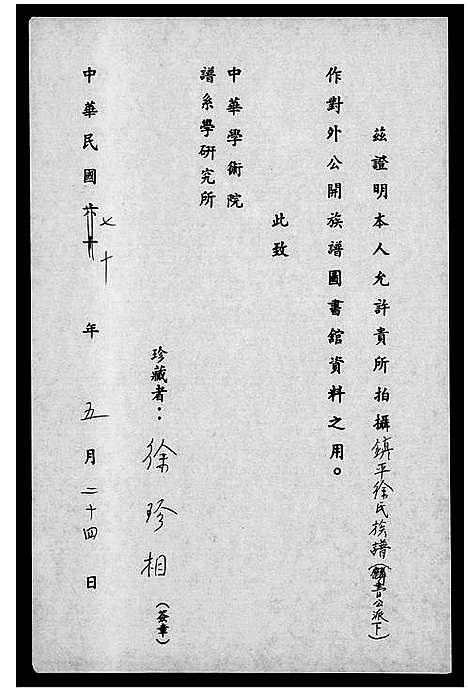 茲證明本人允許貴所拍攝鎮平徐氏族譜(麟書公派下)
作對外公開族譜圖書館資料之用。
此致
中華學術院
譜系學研究所
珍藏者：徐珍相(簽章)
中華民國六十七十年五月二十四日